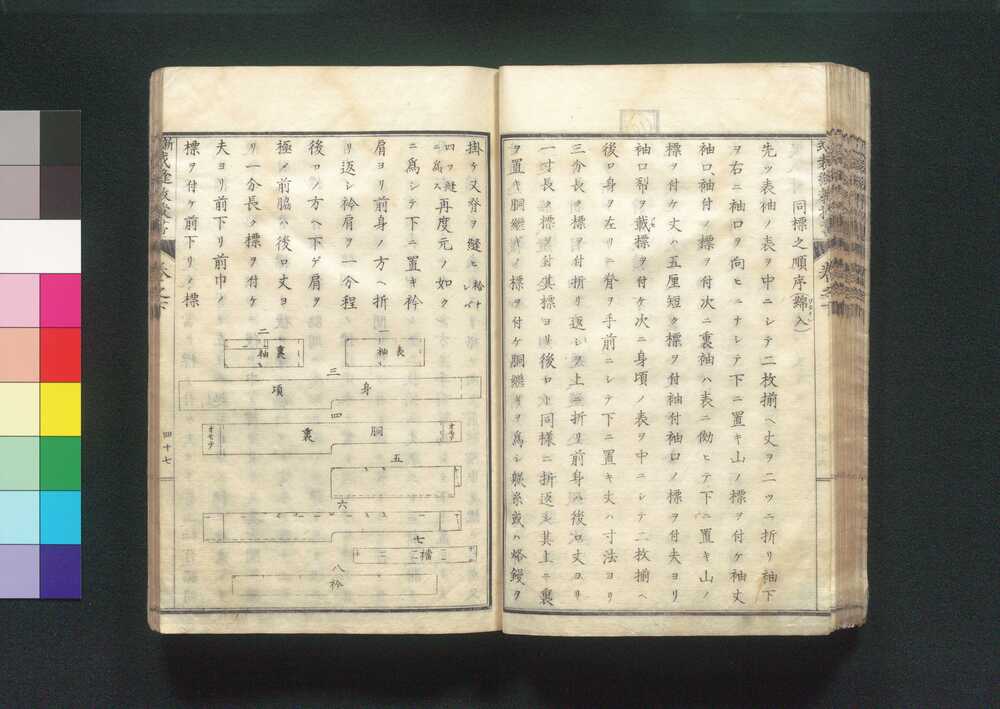 同標之順序(綿入)
先ッ表袖ノ表ヲ中ニシテ二枚揃ヘ丈ヲ二ッニ折リ袖下
ヲ右ニ袖口ヲ向ヒニナシテ下ニ置キ山ノ標ヲ付ケ袖丈
袖口袖付ノ標ヲ付次ニ裏袖ハ表ニ傚ヒテ下ニ置キ山ノ
標ヲ付ケ丈ハ五厘短ク標ヲ付袖付袖口ノ標ヲ付夫ヨリ
袖口裂ヲ載標ヲ付ケ次ニ身頃ノ表ヲ中ニシテ二枚揃ヘ
後ロ身ヲ左リニ脊ヲ手前ニシテ下ニ置キ丈ハ寸法ヨリ
三分長ク標ヲ付折リ返シヲ上ニ折リ前身ハ後ロ丈ヨリ
一寸長ク標ヲ付其標ヨリ後ロト同様ニ折返シ其上ニ裏
ヲ置キ胴継キノ標ヲ付ケ胴継キヲ爲シ躾糸或ハ烙鏝ヲ
掛ケ又脊ヲ縫ヒ
四ッ縫ニ爲ス再度元ノ如ク
ニ爲シテ下ニ置キ衿
肩ヨリ前身ノ方ヘ折
リ返シ衿肩ヲ一分程
後ロノ方ヘ下ゲ肩ヲ
極メ前脇ハ後ロ丈ヨ
リ一分長ク標ヲ付ケ
夫ヨリ前下リ前巾ノ
標ヲ付ケ前下リノ標
一
表袖
二
裏袖
三
身頃
四
オモテ
胴裏
オモテ
五
六
七
襠
八
衿
四十七